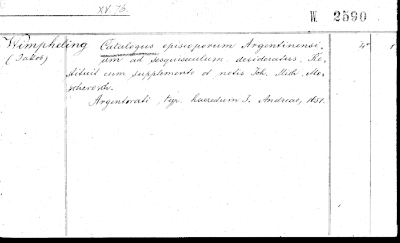 XV. 76
W. 2590
Wimpheling Catalogus episcoporum Argentinensi-
(Jakob) um ad sesquiseculum desideratus. Re-
stituit cum supplemento et notis Joh. Mich. Mo-
scherosch.
Argentorati, typ. haeredum J. Andreae, 1651.
4° 1